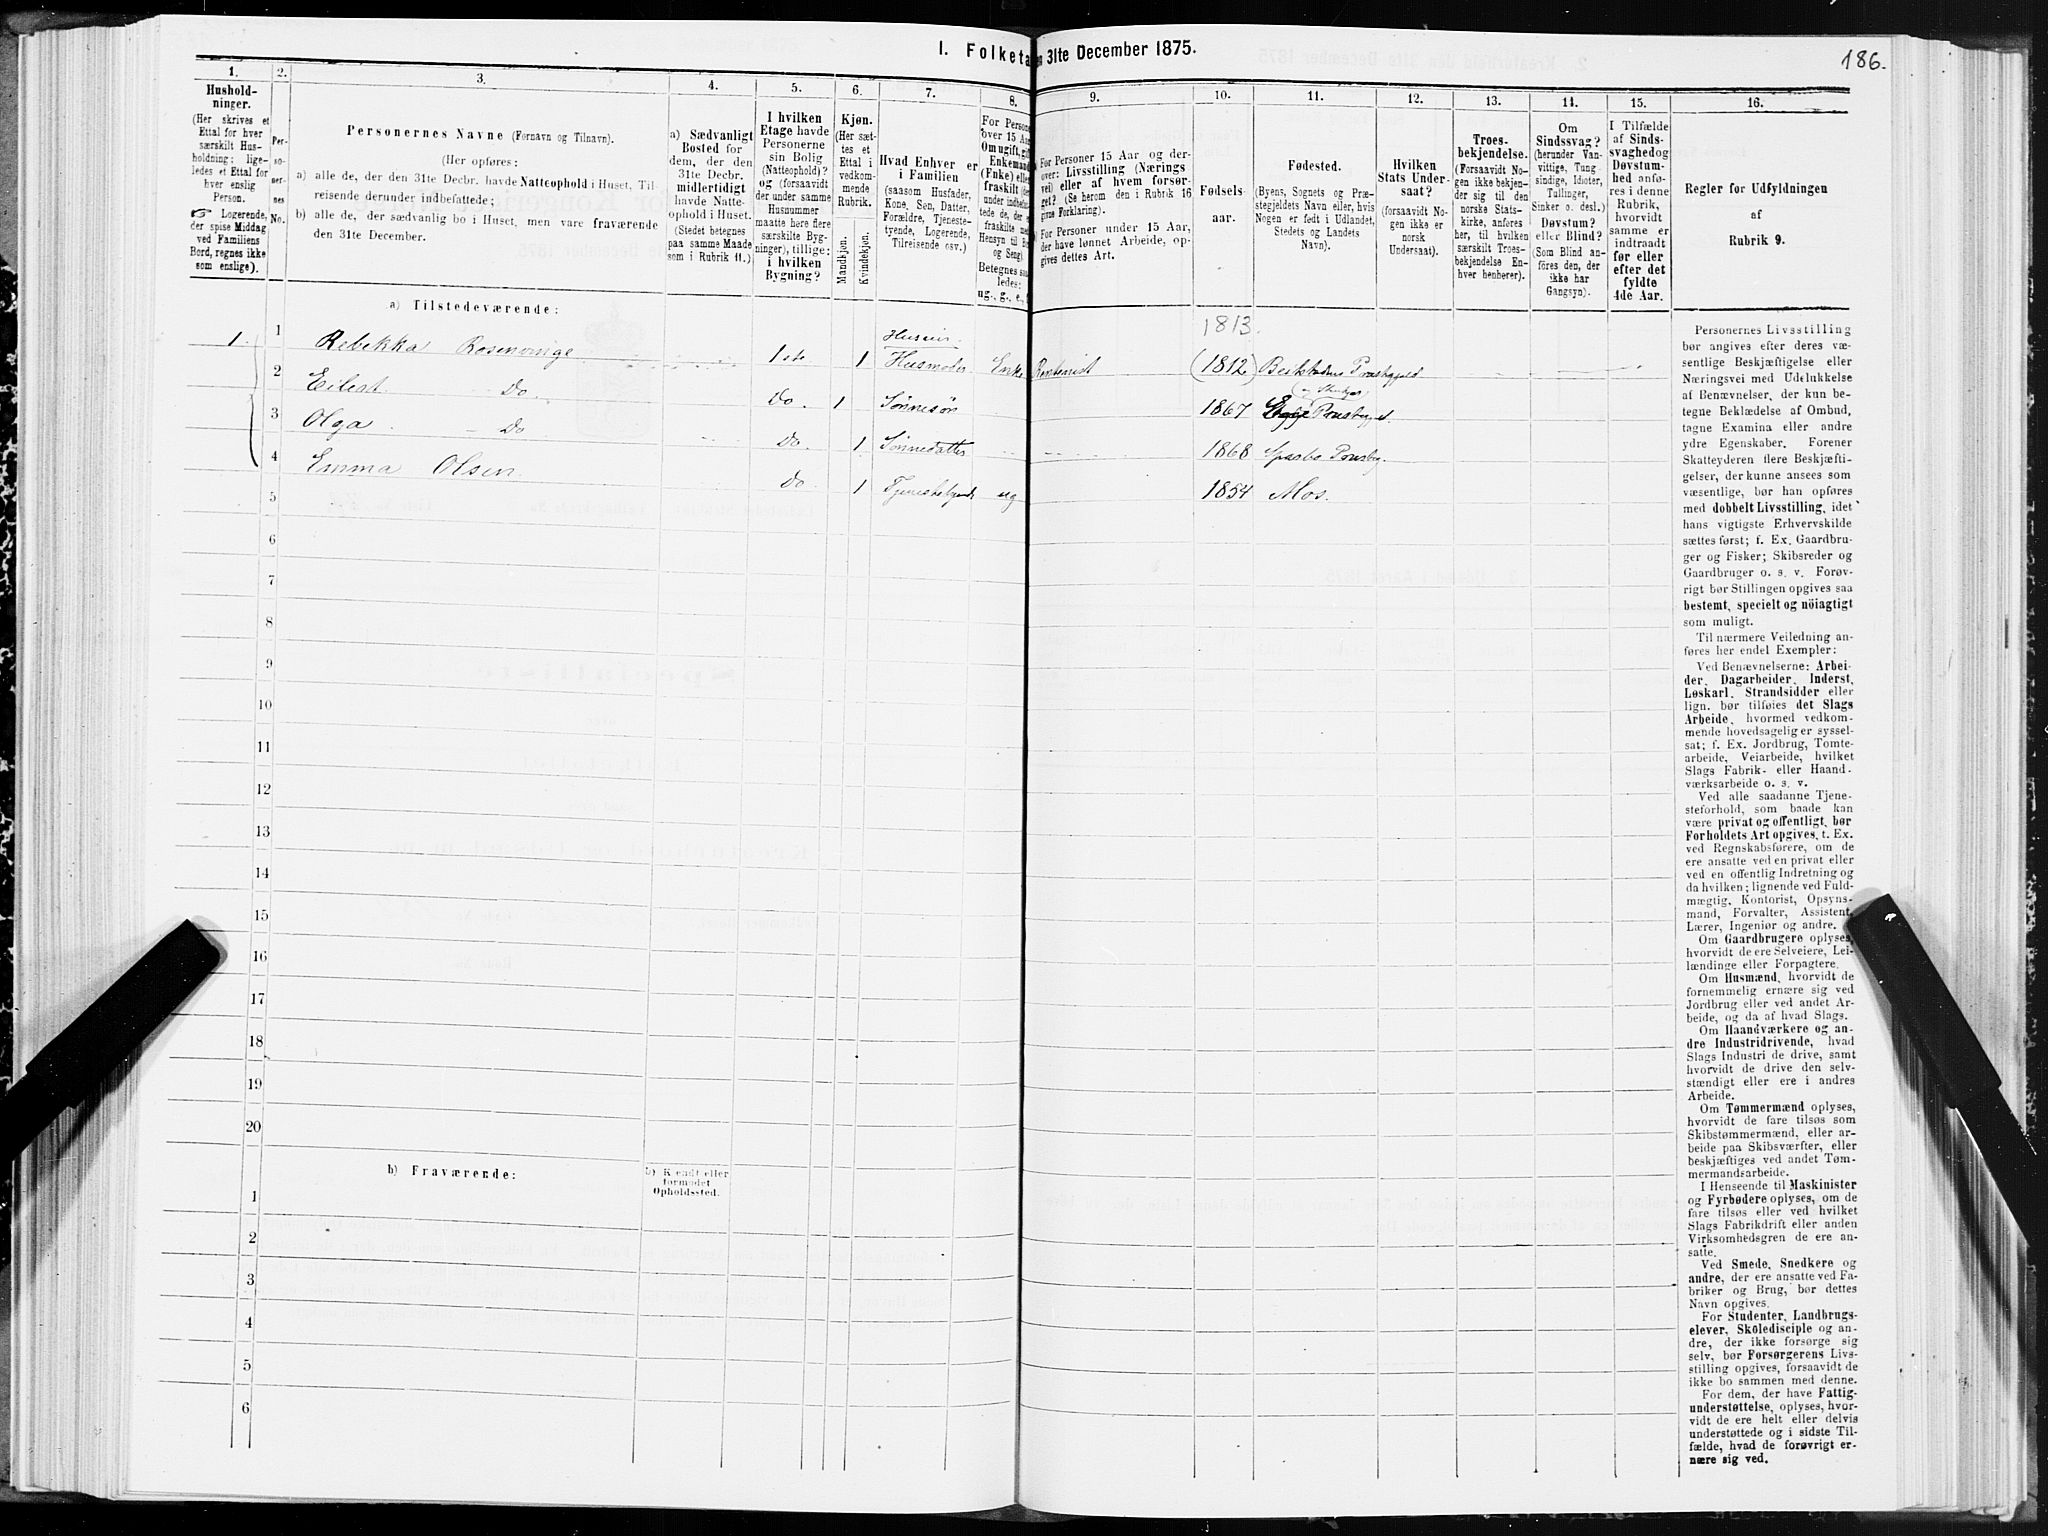 I. Folketa
en 31te December 1875.
186.
1.
2.
3.
4.
5.
6.
7.
8.
9.
10.
11.
12.
13.
14.
15.
16.
Hushold-
ninger.
(Her skrives et
Ettal for hver
særskilt Hus-
holdning; lige-
ledes et Ettal for
hver enslig
Person.
☞ Logerende,
der spise Middag
ved Familiens
Bord, regnes ikke
som enslige).
Per-
so-
ner-
nes
No.
Personernes Navne (Fornavn og Tilnavn).
(Her opføres:
a) alle de, der den 31te Decbr. havde Natteophold i Huset, Til-
reisende derunder indbefattede;
b) alle de, der sædvanlig bo i Huset, men vare fraværende
den 31te December.
a) Sædvanligt
Bosted for
dem, der den
31te Decbr.
midlertidigt
havde Natte-
ophold i Huset.
(Stedet betegnes
paa samme Maade
som i Rubrik 11.)
I hvilken
Etage havde
Personerne
sin Bolig
(Natteophold)?
og (forsaavidt
der under samme
Husnummer
maatte høre flere
særskilte Byg-
ninger), tillige:
i hvilken
Bygning?
Kjøn.
(Her sæt-
tes et
Ettal i
vedkom-
mende
Rubrik.
Mandkjøn.
Kvindekjøn.
Hvad Enhver er
i Familien
(saasom Husfader,
Kone, Søn, Datter,
Forældre, Tjeneste-
tyende, Logerende,
Tilreisende osv.)
For Persone
over 15 Aar
Om ugift, gift
Enkemand
(Enke) elle
fraskilt (de
tede de, der e
fraskilte med
Hensyn til B
og Seng)
Betegnes saa
ledes:
ug., g., e.,
For Personer 15 Aar og der-
over: Livsstilling (Nærings
vei) eller af hvem forsør-
get? (Se herom den i Rubrik 16
givne Forklaring).
For Personer under 15 Aar,
der have lønnet Arbeide, op-
gives dettes Art.
Fødsels-
aar.
Fødested.
(Byens, Sognets og Præ-
stegjeldets Navn eller, hvis
Nogen er født i Udlandet,
Stedets og Landets
Navn).
Hvilken
Stats Under-
saat?
(forsaavidt No-
gen ikke er
norsk
Undersaat).
Troes-
bekjendelse.
(Forsaavidt No-
gen ikke bekjen-
der sig til den
norske Stats-
kirke, anføres
her, til hvilken
særskilt Troes-
bekjendelse En-
hver henhører).
Om
Sindssvag?
(herunder Van-
vittige, Tung-
sindige, Idioter,
Tullinger,
Sinker o. desl.)
Døvstum?
eller Blind?
(Som Blind an-
føres den, der
ikke har
Gangsyn).
I Tilfælde
af Sinds-
svaghed og
Døvstum-
hed anfø-
res i denne
Rubrik,
hvorvidt
samme er
indtraadt
før eller
efter det
fyldte
4de Aar.
Regler for Udfyldningen
af
Rubrik 9.
a) Tilstedeværende:
1813.
Husein.
1 1 Rebekka Rosenvinge 1ste 1 Husmoder Enke Rentenist (1812)
2 Eilert Do Do. 1 Sønnesøn 1867
3 Olga Do Do 1 Sønnedatter 1868
4 Emma Olsen Do 1 ug 1854 Mos.
5
6
7
8
9
10
11
12
13
14
15
16
17
18
19
20
b) Fraværende:
b) Kjendt eller
formodet
Opholdssted.
1
2
3
4
5
6
Personernes Livsstilling
bør angives efter deres væ-
sentlige Beskjæftigelse eller
Næringsvei med Udelukkelse
af Benævnelser, der kun be-
tegne Beklædelse af Ombud,
tagne Examina eller andre
ydre Egenskaber. Forener
Skatteyderen flere Beskjæfti-
gelser, der kunne ansees som
væsentlige, bør han opføres
med dobbelt Livsstilling, idet
hans vigtigste Erhvervskilde
sættes først; f. Ex. Gaardbru-
ger og Fisker; Skibsreder og
Gaardbruger o. s. v. Forøv-
rigt bør Stillingen opgives saa
bestemt, specielt og nöiagtigt
som muligt.
Til nærmere Veiledning an-
føres her endel Exempler:
Ved Benævnelserne: Arbei-
der, Dagarbeider, Inderst,
Løskarl, Strandsidder eller
lign. bør tilføies det Slags
Arbeide, hvormed vedkom-
mende hovedsagelig er syssel-
sat; f. Ex. Jordbrug, Tomte-
arbeide, Veiarbeide, hvilket
Slags Fabrik- eller Haand-
værksarbeide o. s. v.
Ved alle saadanne Tjene-
steforhold, som baade kan
være privat og offentligt, bør
Forholdets Art opgives, t. Ex.
ved Regnskabsførere, om de
ere ansatte ved en privat eller
ved en offentlig Indretning og
da hvilken; lignende ved Fuld-
mægtig, Kontorist, Opsyns-
mand, Forvalter, Assistent,
Lærer, Ingeniør og andre.
Om Gaardbrugere oplyses,
hvorvidt de ere Selveiere, Lei-
lændinge eller Forpagtere.
Om Husmænd, hvorvidt de
fornemmelig ernære sig ved
Jordbrug eller ved andet Ar-
beide, og da af hvad Slags.
Om Haandværkere og an-
dre Industridrivende, hvad
Slags Industri de drive, samt
hvorvidt de drive den selv-
stændigt eller ere i andres
Arbeide.
Om Tømmermænd oplyses,
hvorvidt de fare tilsøs som
Skibstømmermænd, eller ar-
beide paa Skibsværfter, eller
beskjæftiges ved andet Tøm-
mermandsarbeide.
I Henseende til Maskinister
og Fyrbødere oplyses, om de
fare tilsøs eller ved hvilket
Slags Fabrikdrift eller anden
Virksomhedsgren de ere an-
satte.
Ved Smede, Snedkere og
andre, der ere ansatte ved Fa-
briker og Brug, bør dettes
Navn opgives.
For Studenter, Landbrugs-
elever, Skoledisciple og an-
dre, der ikke forsørge sig
selv, bør Forsørgerens Livs-
stilling opgives, forsaavidt de
ikke bo sammen med denne.
For dem, der have Fattig-
understøttelse, oplyses, hvor-
vidt de ere helt eller delvis
understøttede og i sidste Til-
fælde, hvad de forøvrigt er-
nære sig ved.